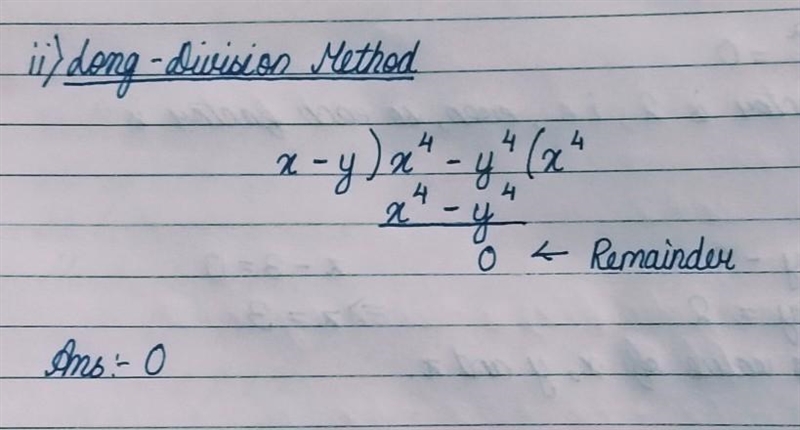 ii) Long-Division Method
x - y ) x⁴ - y⁴ ( x⁴
x⁴ - y⁴
0 ← Remainder
Ans:- 0